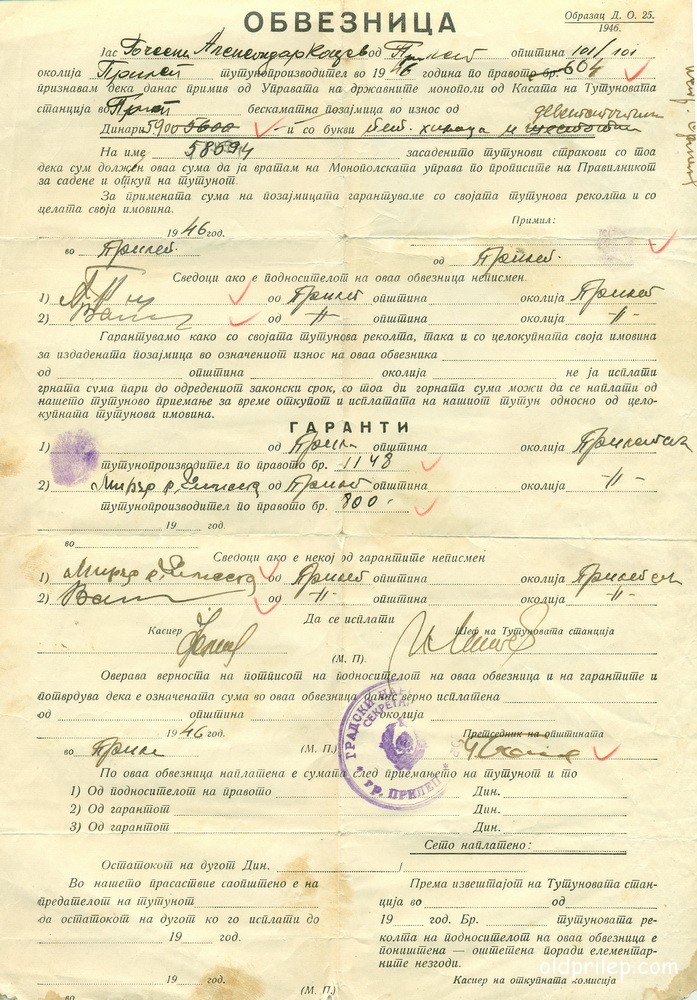 ОБВЕЗНИЦА
Образац Д. О. 25.
1946.
Јас Александар Коцев од Прилеп општина 101/101
околија Прилеп тутунопроизводител во 1946 година по правото бр. 604
признавам дека данас примив од Управата на државните монополи од Касата на Тутуновата
станција во Прилеп бескаматна позајмица во износ од деветстотини
Динари 5900 5600 и со букви пет хиљада и шестстотин
На име 58594 засаденито тутунови стракови со тоа
дека сум должен оваа сума да ја вратам на Монополската управа по прописите на Правилникот
за садене и откуп на тутунот.
За примената сума на позајмицата гарантуваме со својата тутунова реколта и со
целата своја имовина.
Примил:
1946 год.
во Прилеп. од Прилеп.
Сведоци ако е подносителот на оваа обвезница неписмен.
1) од Прилеп општина околија Прилеп
2) од -"- општина околија -"-
Гарантуваме како со својата тутунова реколта, така и со целокупната своја имовина
за издадената позајмица во означениот износ на оваа обвезника
од општина околија не ја исплати
грната сума пари до одредениот законски срок, со тоа ди горната сума можи да се наплати од
нашето тутуново приемање за време откупот и исплатата на нашиот тутун односно од цело-
купната тутунова имовина.
ГАРАНТИ
1) од Прилеп општина околија Прилепска
тутунопроизводител по правото бр. 1148
2) од Прилеп општина околија -"-
тутунопроизводител по правото бр. 800
19 год.
во
Сведоци ако е некој од гарантите неписмен
1) од Прилеп општина околија Прилепска
2) од -"- општина околија -"-
Да се исплати
Касиер Шеф на Тутуновата станција
(М. П).
Оверава верноста на потписот на подносителот на оваа обвезница и на гарантите и
потврдува дека е означената сума во оваа обвезница данас верно исплатена
од општина околија
1946 год. Претседник на општината
во Прилеп (М. П.)
ГРАДСКИ
СЕКРЕТ
ГР. ПРИЛЕП
По оваа обвезница наплатена е сумата след приемањето на тутунот и то
1) Од подносителот на правото Дин.
2) Од гарантот Дин.
3) Од гарантот Дин.
Сето наплатено:
Остатокот на дугот Дин. /
Во нашето прасаствие саопштено е на
предателот на тутунот
да остатокот на дугот ко го исплати до
19 год.
Према извештајот на Тутуновата стан-
ција во од
19 год. Бр. тутуновата ре-
колта на подносителот на оваа обвезница е
поништена — оштетена поради елементар-
ните незгоди.
19 год.
Касиер на откупната комисија
(М. П.)
во
oldprilep.com